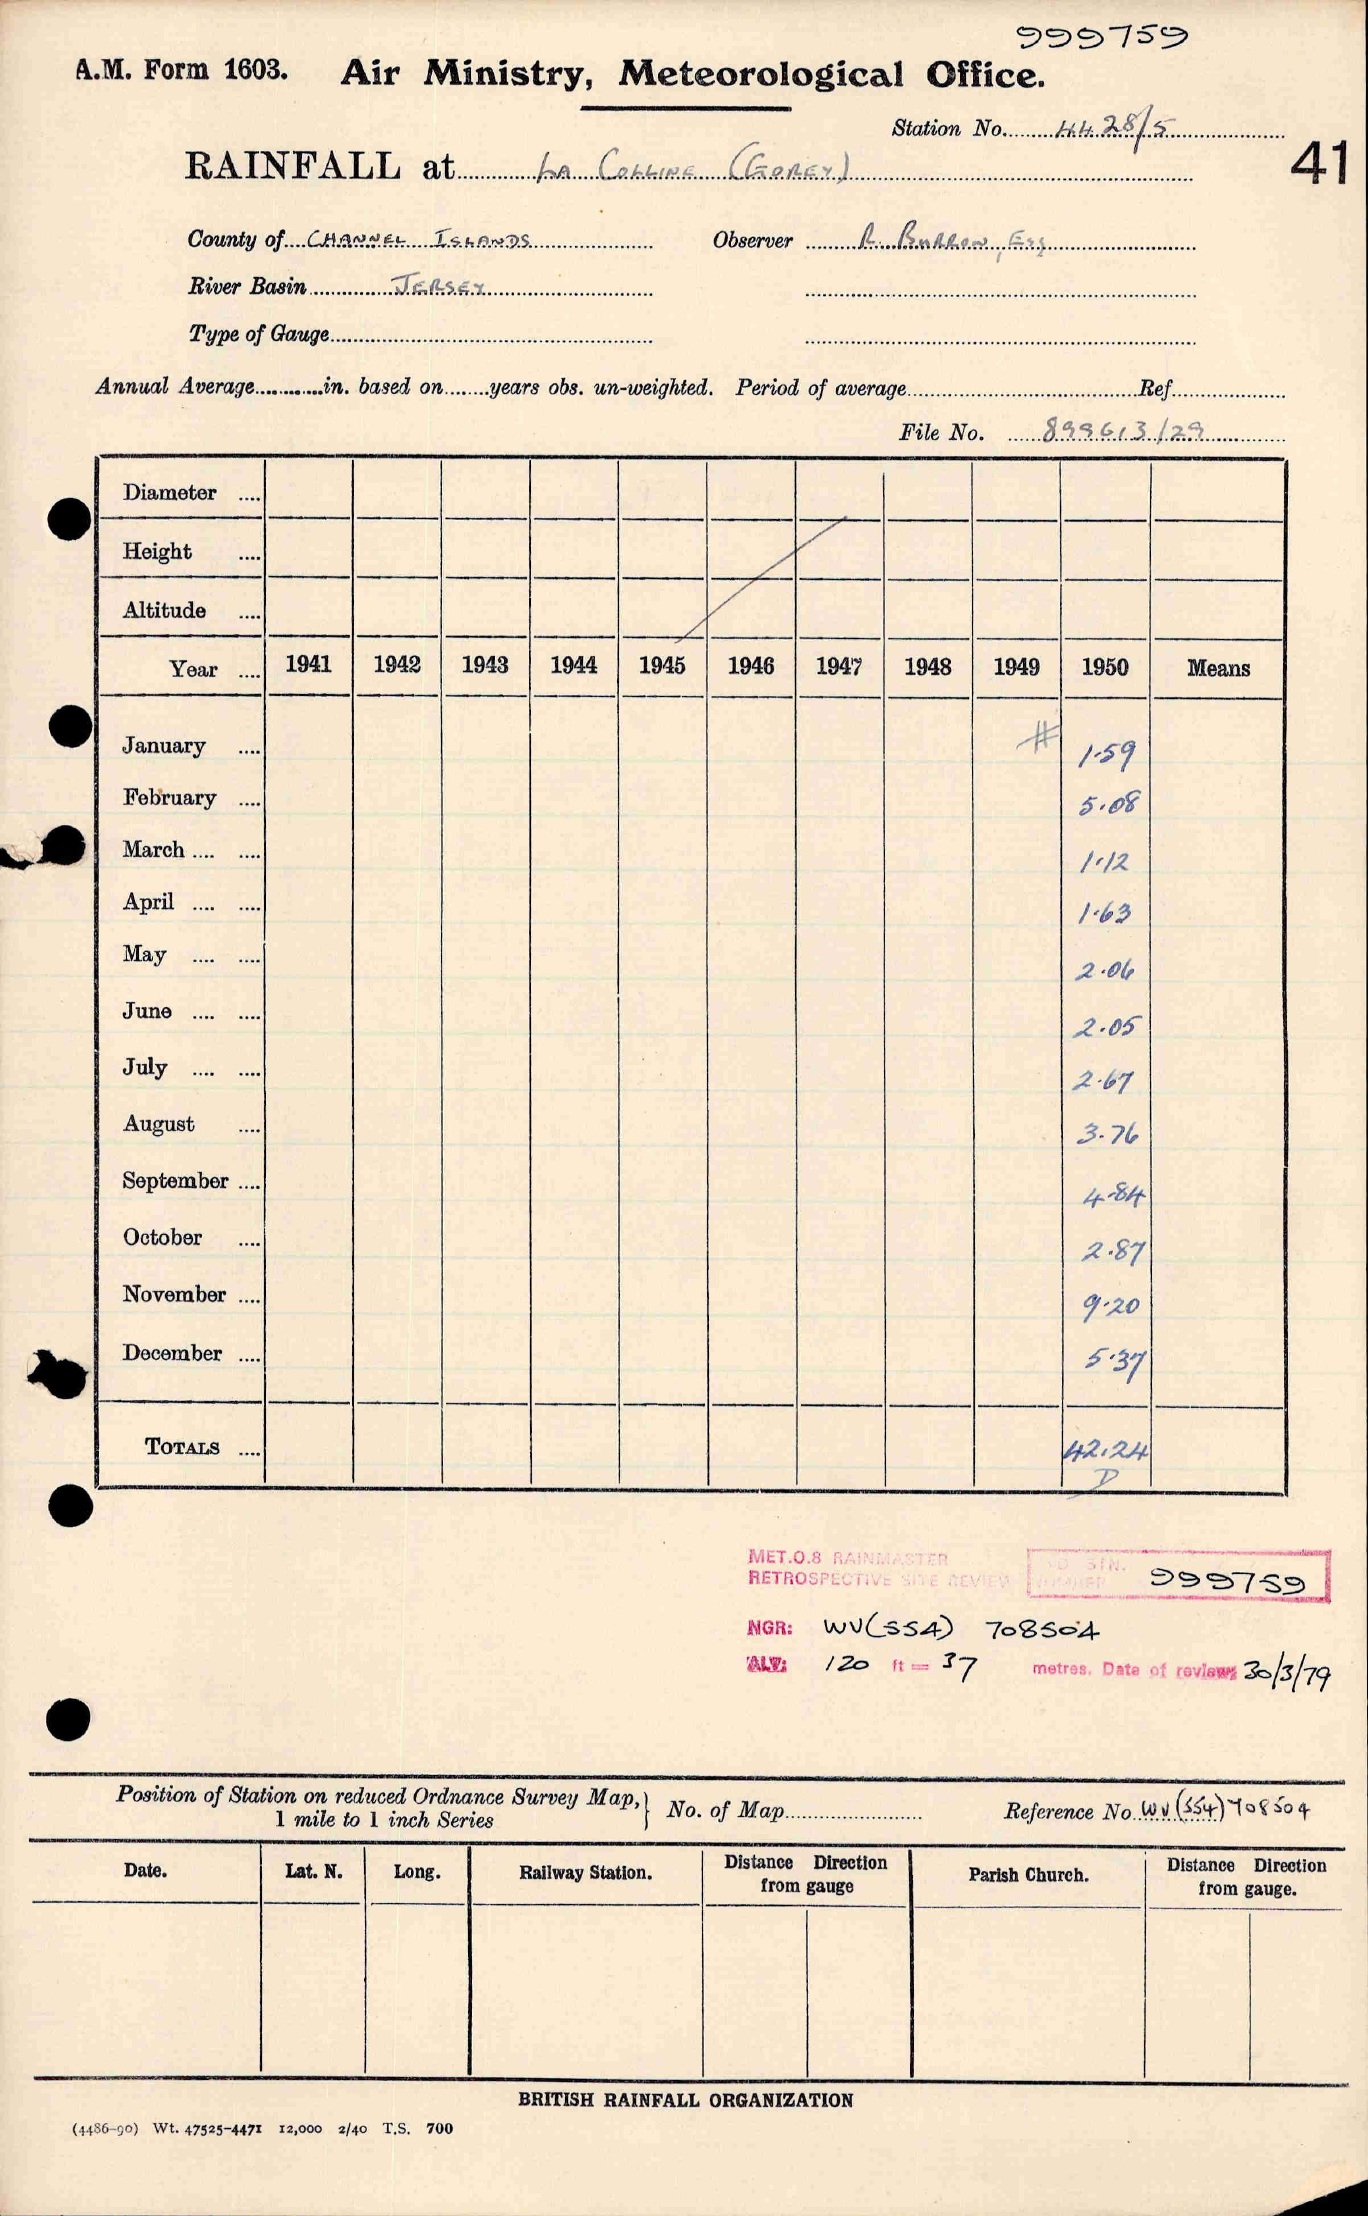 999759
A.M. Form 1603. Air Ministry, Meteorological Office.
Station No. 4428/5
41
RAINFALL at La Colline (Gorey)
County of Channel Islands Observer R. Burrow, Esq
River Basin Jersey
Type of Gauge
Annual Average in. based on years obs. un-weighted. Period of average Ref
File No. 899613/29
Diameter ....
Height ....
Altitude ....
Year .... 1941 1942 1943 1944 1945 1946 1947 1948 1949 1950 Means
January .... # 1.59
February .... 5.08
March .... .... 1.12
April .... .... 1.63
May .... .... 2.06
June .... .... 2.05
July .... .... 2.67
August .... 3.76
September .... 4.84
October .... 2.87
November .... 9.20
December .... 5.37
TOTALS .... 42.24
D
MET.O.8 RAINMASTER
RETROSPECTIVE SITE REVIEW
STN.
NUMBER 999759
NGR: WV(SS4) 708504
ALT: 120 ft = 37 metres. Date of review: 30/3/79
Position of Station on reduced Ordnance Survey Map,
1 mile to 1 inch Series
No. of Map Reference No. WV(SS4) 708504
Date. Lat. N. Long. Railway Station. Distance Direction from gauge Parish Church. Distance Direction from gauge.
BRITISH RAINFALL ORGANIZATION
(4486-90) Wt. 47525-4471 12,000 2/40 T.S. 700